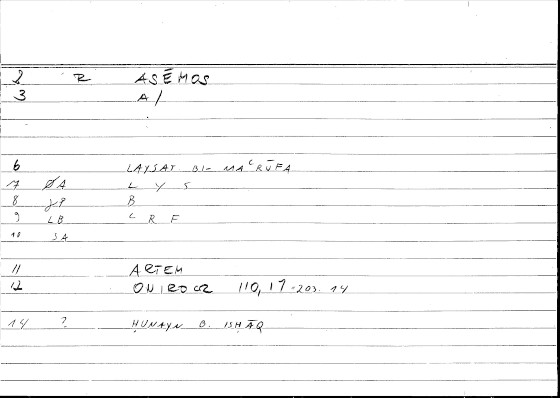 2 R ASĒMOS
3 A/
6 LAYSAT BI- MAʿRŪFA
7 ØA L Y S
8 B
9 LB ʿ R F
10 SA
11 ARTEM
12 ONIROCR 110,17-203.14
14 ? ḤUNAYN B. ISḤĀQ